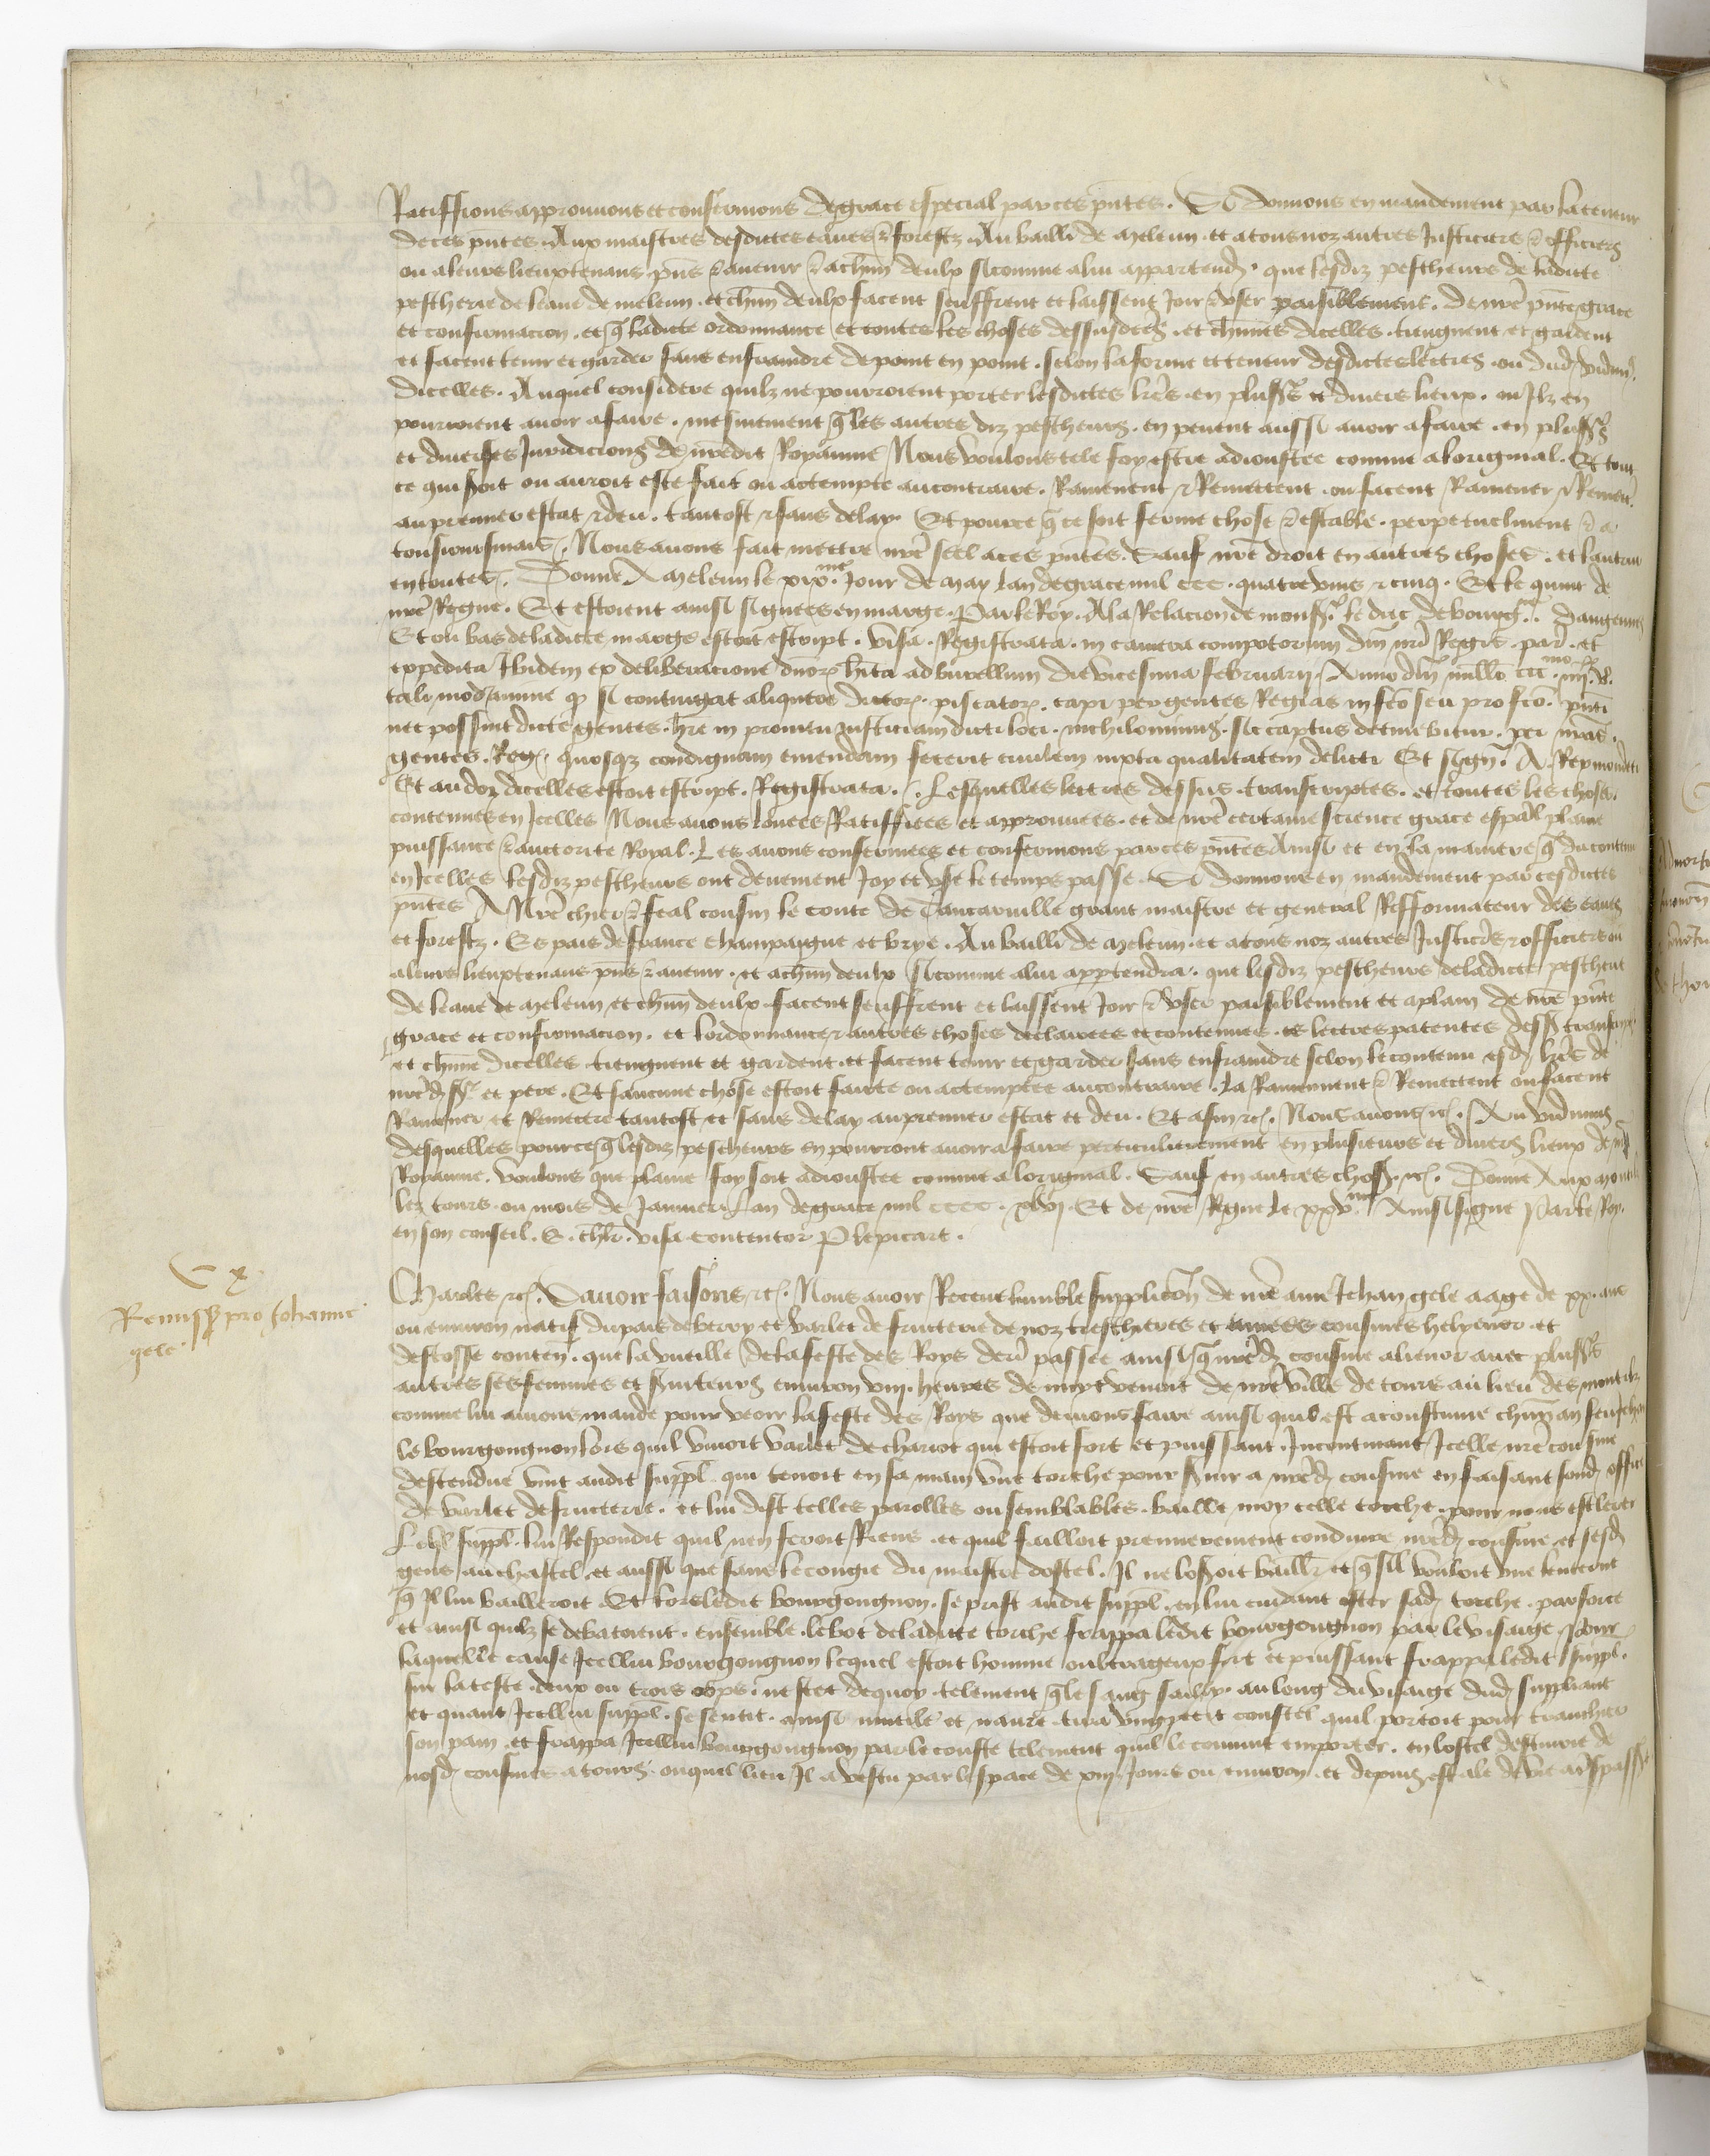 Ratiffions approuvons et confermons de grace especial par ces pntes. Si donnons en mandement par la teneur
de ces pntes. Aux maistres desdictes eaues & forestz. Au bailli de meleun. et a tous noz autres Justiciers & officiers
ou a leurs lieuxtenans pns & avenir & a chm deulx si comme a lui appartendra. que lesdiz pescheurs de ladicte
pescherie de leaue de meleun. et chm deulx facent seuffrent et laissent Joir & user paisiblement. de nre pnte grace
et confirmacion. et q ladicte ordonnance et toutes les choses dessusdictes. et chunes dicelles. tiengnent et gardent
et facent tenir et garder sans enfraindre de point en point. selon la forme et teneur desdictes lettres. ou dud vidimus
dicelles. Auquel considere quilz ne pourroient porter lesdictes lres. en plusrs et divers lieux. ou Ilz en
pourroient avoir a faire. mesmement q les autres diz pescheurs. en peuent aussi avoir a faire. en plusrs
et diverses Juridicions de nredit Royaume Nous voulons tele foy estre adioustee comme a loriginal. Et tout
ce qui soit ou auroit este fait ou actempte au contraire. Ramenent & Remettent. ou facent Ramener & Remettre
au premier estat & deu. tantost & sans delay. Et pource q ce soit ferme chose & estable. perpetuelment & a
tousioursmais. Nous avons fait mettre nre seel a ces pntes. Sauf nre droit en autres choses. et lautrui
en toutes. Donne A Meleun le xix.me Jour de May Lan de grace mil ccc. quatre vins & cinq. Et le quint de
nre Regne. Et estoient ainsi signees en marge. Par le Roy. A la Relacion de monsr. le duc de bourgne. Daugennes
Et ou bas de ladicte marge estoit escript. visa. Registrata. in camera compotorum dni nri Regis. par. et
expedita Ibidem ex deliberacione dnorum hita ad burellum die vicesima februarii. Anno dni millo ccc.mo iiii.xx
tali modramine q si contingat aliquem dictorum. piscatorum. capi per gentes Regias in fco seu pro fco. pnti
nec possint dicte gentes. hre in promtu Justiciam dicti loci. nichilominus. sic captus detinebitur. per nras.
gentes. Reg. quosq condignam emendam fecerit civilem iuxta qualitatem delicti Et sign. A. Reymondeti
Et au doz dicelles estoit escript. Registrata. Lesquelles lettres dessus transcriptes. et toutes les choses.
contenues en Icelles Nous avons louees Ratiffiees et approuvees. et de nre certaine science grace espal plaine
puissance & auctorite Royal. Les avons confermees et confermons par ces pntes Ainsi et en la maniere q du contenu
en Icelles lesdiz pescheurs ont deuement Joy et use le temps passe. Si donnons en mandement par cesdictes
pntes A Nre chier & feal cousin le conte de Tancarville grant maistre et general Refformateur des eaues
et forestz. Es pais de france Champaigne et brye. Au bailli de Meleun. et a tous noz autres Justiciers & officiers ou
a leurs lieuxtenans pns & avenir. et a chm deulx si comme a lui appartendra. que lesdiz pescheurs de ladicte pescherie
de leaue de Meleun et chm deulx facent seuffrent et laissent Joir & user paisiblement et a plain de nre pnte
grace et confirmacion. et lordonnance & autres choses declairees et contenues. es lettres patentes dess transcrip
et chune dicelles tiengnent et gardent. et facent tenir et garder sans enfraindre selon le contenu esd lres de
nred sr. et pere. Et saucune chose estoit faicte ou actemptee au contraire. La Ramenent & Remettent ou facent
Ramener et Remettre tantost et sans delay au premier estat et deu. Et afin &c. Nous avons &c. Au vidimus
desquelles pource q lesdiz pescheurs en pourront avoir a faire particulierement en plusieurs et divers lieux de nre
Royaume. Voulons que plaine foy soit adioustee comme a loriginal. Sauf en autres choses. &c. Donne Aux Montilz
lez tours. ou mois de Janvier Lan de grace mil cccc. xlvj. Et de nre Regne le xxv.me Ainsi signe Par le Roy.
en son conseil. E. chlr. visa contentor P le picart.
C x
Remissio pro Johanne
gele.
Charles &c. Savoir faisons &c. Nous avoir Receu lumble supplicon de nre ame Jehan gele aage de xx. ans
ou environ natif du pais de berry et varlet de fructerie de noz treschieres et amees cousines helyenor. et
descosse conten. que la vueille de la feste des Roys derr passee ainsi q nred cousine alienor avec plusrs
autres ses femmes et serviteurs environ viij. heures de nuyt venoit de nre ville de tours au lieu des montilz
comme lui avions mande pour veoir la feste des Roys que devions faire ainsi quil est acoustume chun an feu Jehan
le bourgongnon lors quil vivoit varlet de chariot qui estoit fort et puissant. Incontinant Icelle nre cousine
descendue vint audit suppl. qui tenoit en sa main une torche pour servir a nred cousine en faisant sond office
de varlet de fructerie. et lui dist telles parolles ou semblables. baille moy celle torche. pour nous esclerer
Lequel suppl. lui Respondit quil nen feroit Riens. et quil failloit premierement conduire nred cousine. et sesd
gens au chastel. et aussi que sans le congie du maistre dostel. Il ne losoit bailler et q sil vouloit une lenterne
q Il lui bailleroit Et lors ledit bourgongnon. se prist audit suppl. en lui cuidant oster sad torche. par force
et ainsi quilz se debatoient. ensemble. le bot de ladicte torche frappa ledit bourgongnon par le visaige. pour
laquelle cause Icellui bourgongnon lequel estoit homme oultrageux fort et puissant frappa ledit suppl.
sur la teste. deux ou trois cops. ne scet dequoy. telement q le sang sailly. au long du visaige dud suppliant
et quant Icellui suppl. se sentit. ainsi mutile et navre. tira ung petit coustel quil portoit pour trancher
son pain. et frappa Icellui bourgongnon par le couste telement quil le convint emporter. en lostel destinoit de
nosd cousines a tours. ouquel lieu Il a vescu par lespace de xiij. Jours ou environ. et depuis est ale de vie a trespassement